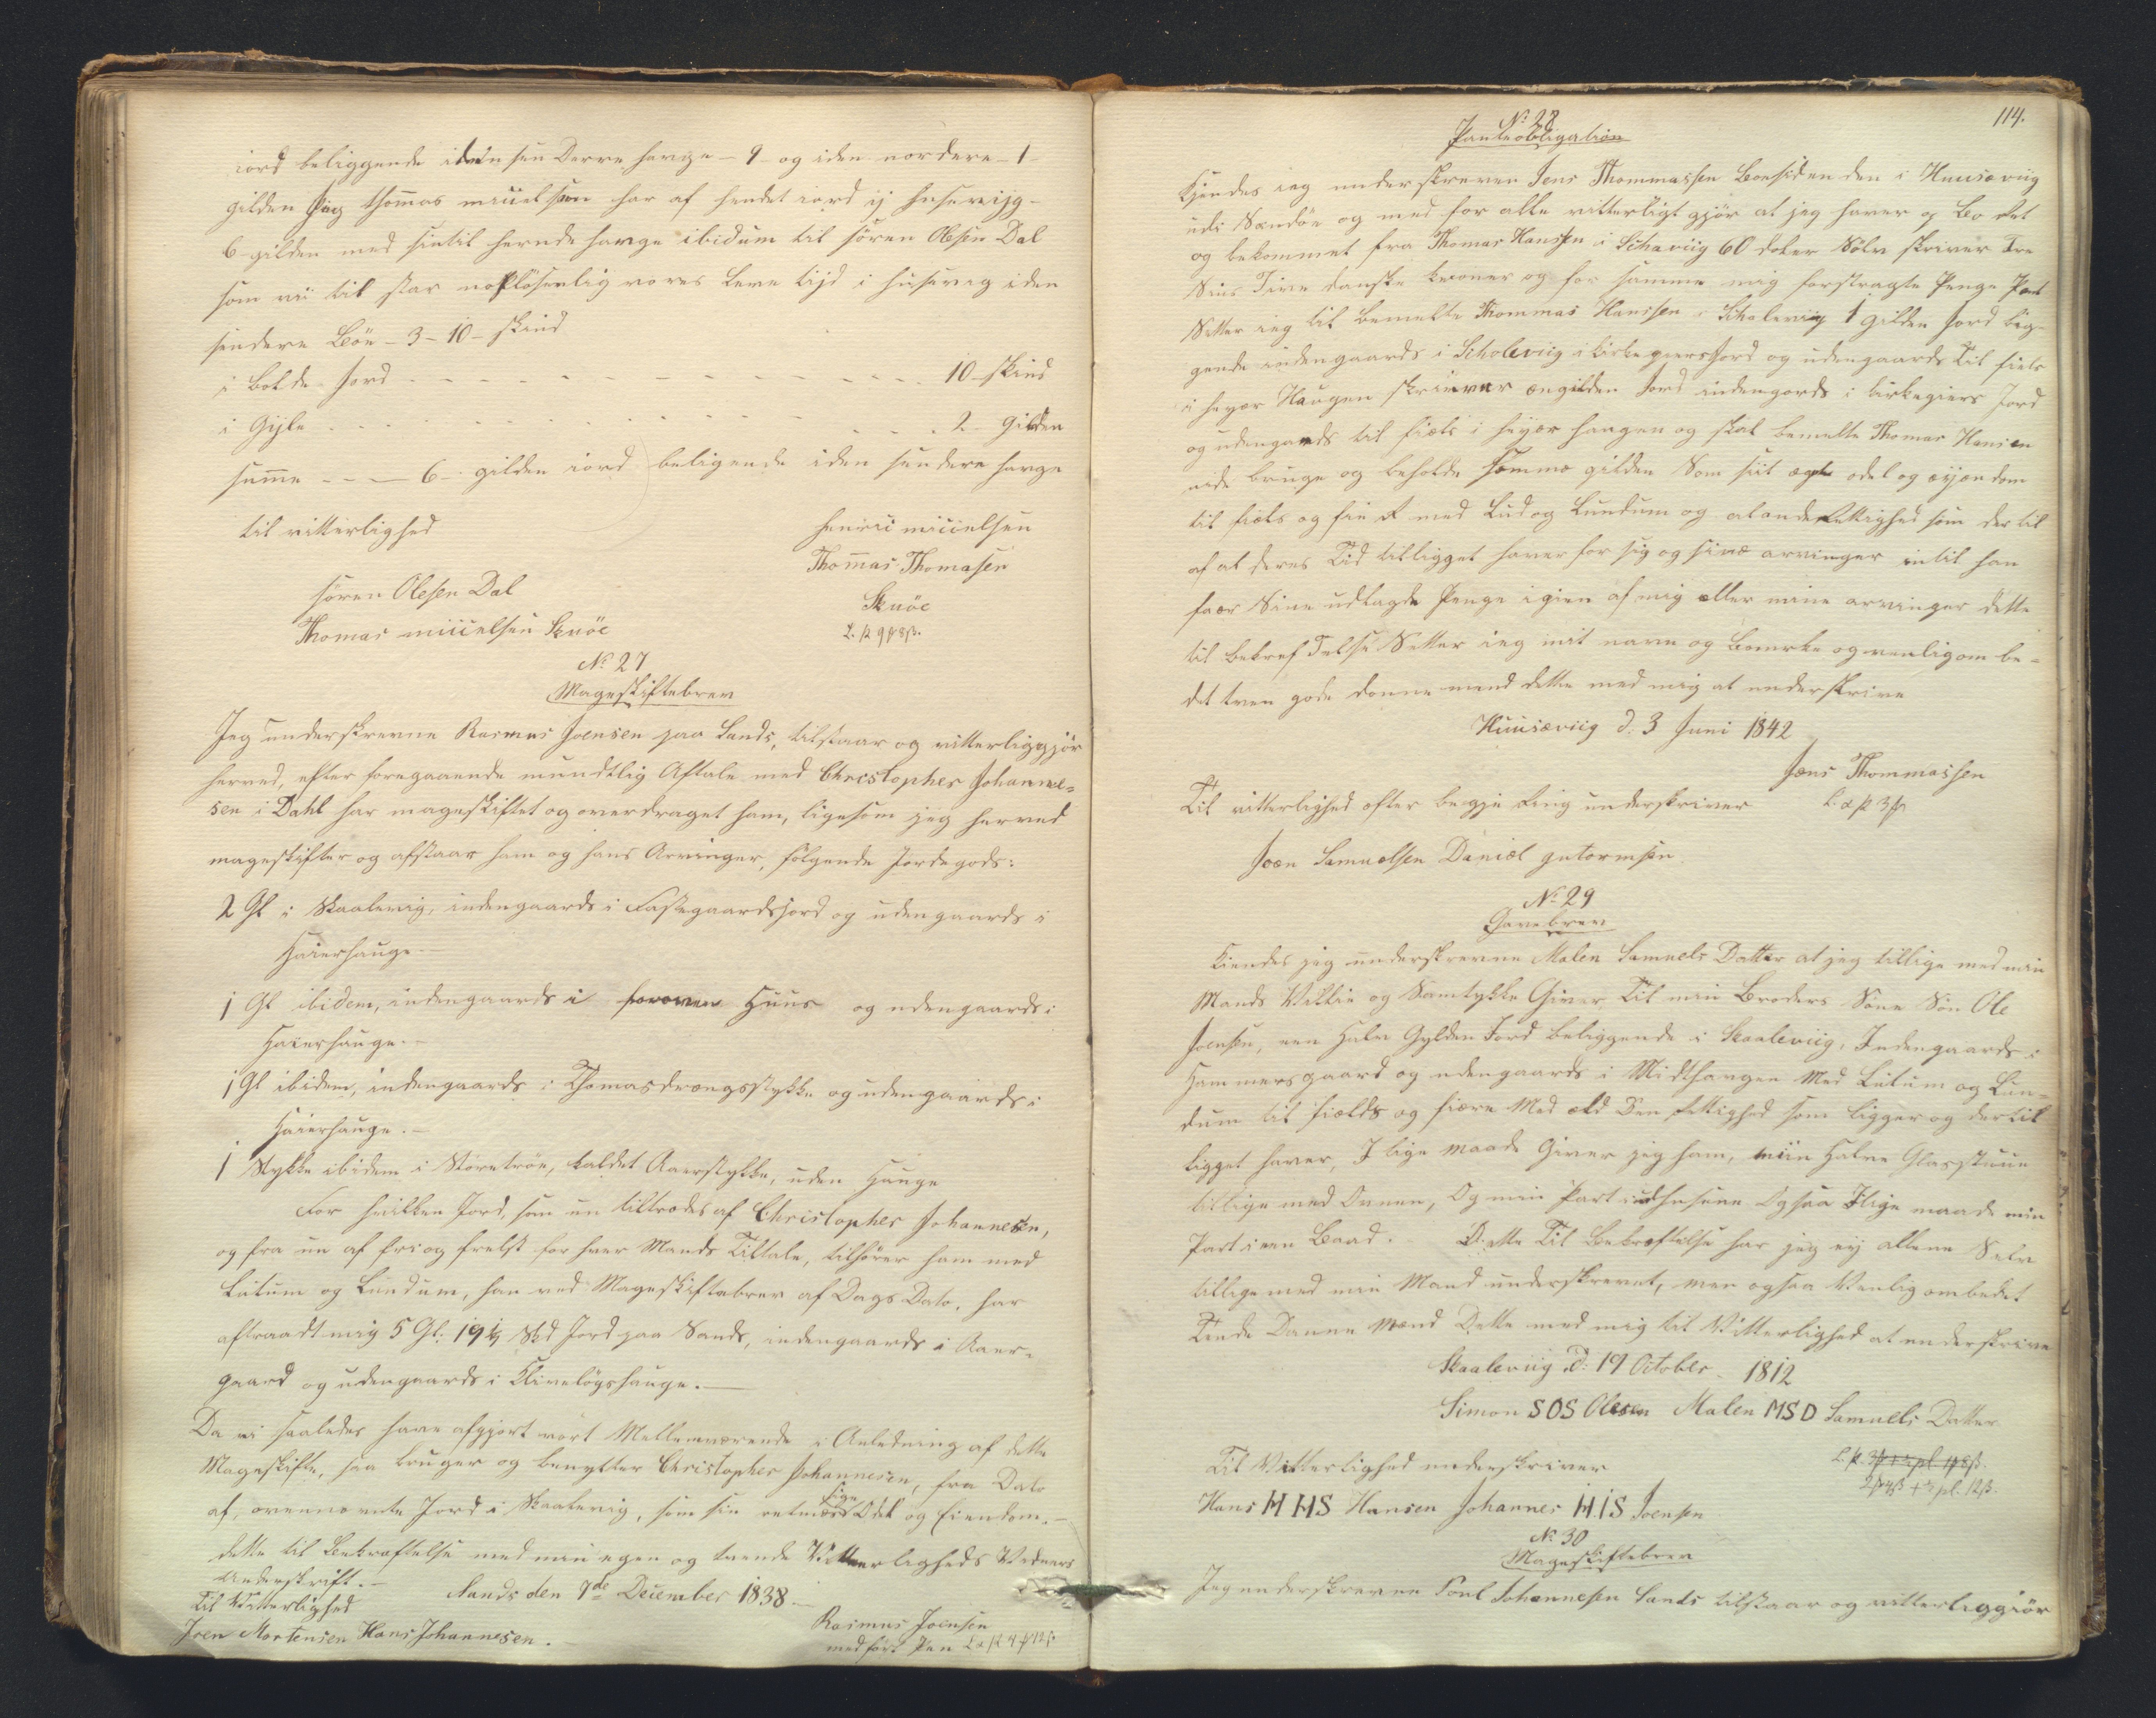 iord beliggende iden sen Derre havge - 9 - og iden nordere - 1 -
gilden Jeg thommas miüelsøen har af hendet iord ij husevijg -
6 gilden med sintil hernde havge ibidum til sören Olesen Dal
som vii til star vores leve tijd i husevig iden
sendere Böe - 3 - 10 - skind
i bolde Jord 10 skind
i Gijle 2 Gilden
summe - - - 6 - gilden iord beligende iden sendere havge
til vitterlighed henrii miiielsen
Thommas Thomasen
sören Olesen Dal Skuöe
Thomas miiielsen Skuöe
No 27
Mageskiftebrev
Jeg underskrevne Rasmus Joensen paa Sands, tilstaar og vitterliggjör
herved, efter foregaaende mundtlig Aftale med Christopher Johanne-
sen i Dahl har mageskiftet og overdraget ham, ligesom jeg herved
mageskifter og afstaar ham og hans Arvinger, fölgende Jordegods:
2 Gl i Skaalevig, indengaards i Fastegaardsjord og udengaards i
Haierhauge. -
1 Gl ibidem, indengaards i foroven Huus og udengaards i
Haierhauge. -
1 Gl ibidem, indengaards i Thomasdrengsstykke og udengaards i
Haierhauge. -
1 Stykke ibidem i Störetröe, kaldet Aaerstykke, uden Hauge
For hvilken Jord, som nu tiltrædes af Christopher Johannesen,
og fra nu af fri og frelst for hver Mands Tiltale, tilhörer ham med
Lutum og Lundum, han ved Mageskiftebrev af Dags Dato, har
aftraadt mig 5 Gl: 19 1/3 Skd Jord paa Sands, indengaards i Aaer-
gaard og udengaards i Klivelöyshauge. -
Da vi saaledes have afgjort vort Mellemværende i Anledning af dette
Mageskifte, saa bruger og benytter Christopher Johannesen, fra Dato
af, ovennævnte Jord i Skaalevig, som sin retmæssige Odel og Eiendom. -
dette til Bekræftelse med min egen og tvende Vitterligheds Vidners
Underskrift. -
Sands den 7de December 1838 -
Til Vitterlighed
Rasmus Joensen
Joen Mortensen Hans Johannesen.
med fört Pen
114.
No 28
Panteobligation
Kjendes iag underskreven Jens Thommassen Boesiden den i Huusæviig
udi Sandöe og med for alle vitterligt gjör at jeg haver og Bo det
og bekommet fra Thomas Hansen i Schaviig 60 daler Sölv skriver Tre
Sins Tive danske kroner og for samme mig forstragte Penge Pant
Setter ieg til Bemelte Thommas Hanssen i Scholeviig 1 gilden Jord lig-
gende indengaards i Scholeviig i kirkegiers Jord og udengaards Til fiels
i heyer Haugen skriever en gilden Jord indengords i kirkegiers Jord
og udengards til fiels i heyer haugen og skal bemelte Thomas Hansen
nide bruge og beholde samme gilden Som siit egte odel og eijendom
til fiels og fiæ med Lud og Lundum og al anderettighed som der til
af al deres Tid tilligget haver for sig og sine arvinger intil han
faar Sine udlagde Penge igien af mig eller mine arvinger dette
til bekref telse Setter ieg mit navn og bomerke og venligom be-
det tven gode danne mend dette med mig at underskrive
Huusæviig d. 3 Juni 1842
Jens Thommassen
Til vitterlighed efter begjæring underskriver
Joen Samuelsen Daniel gutormsen.
No 29
Gavebrev
Kiendes jeg underskrevne Malen Samuels Datter at jeg tillige med min
Mands Villie og Samtykke Giver Til min Broders Söns Sön Ole
Joensen, een Halv Gylden Jord beliggende i Skaaleviig, Indengaards i
Hammersgaard og udengaards i Midthaugen Med Lutum og Lun-
dum til fields og fiære Med ald Den rettighed som ligger og der til
ligget haver, I lige maade Giver jeg ham, min Halve Glasstuue
tillige med Ovnen, Og min Part udhusene Ogsaa I lige maade min
Part i een Baad. Dette Til Bekræftelse har jeg ey allene Selv
tillige med min Mand underskrevet, men ogsaa Venlig ombedet
Tvende Danne Mænd Dette med mig til Vitterlighed at underskrive
Skaaleviig d: 19 October 1812
Simon SOS Olesen Malen MSD Samuels Datter
Til Vitterlighed underskriver
Hans HHS Hansen Johannes HIS Joensen
No 30
Mageskiftebrev
Jeg underskrevne Poul Johannesen Sands tilstaar og vitterliggiör